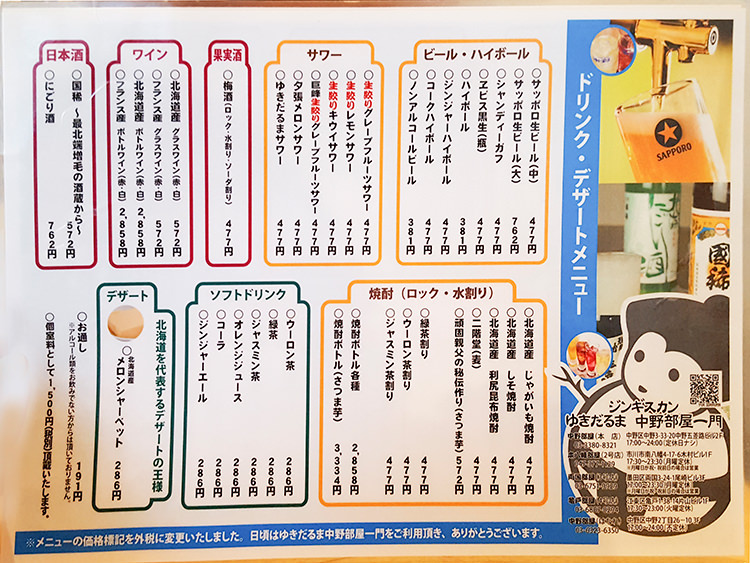 ドリンク・デザートメニュー
SAPPORO
国稀
ビール・ハイボール
○サッポロ生ビール(中) 477円
○サッポロ生ビール(大) 762円
○シャンディーガフ 477円
○ヱビス黒生(瓶) 477円
○ハイボール 381円
○ジンジャーハイボール 477円
○コークハイボール 477円
○ノンアルコールビール 381円
サワー
○生絞りグレープフルーツサワー 477円
○生絞りレモンサワー 477円
○生絞りキウイサワー 477円
○巨峰生絞りグレープフルーツサワー 477円
○夕張メロンサワー 477円
○ゆきだるまサワー 477円
果実酒
○梅酒(ロック・水割り・ソーダ割り) 477円
ワイン
○北海道産 グラスワイン(赤・白) 572円
○フランス産 グラスワイン(赤・白) 572円
○北海道産 ボトルワイン(赤・白) 2,858円
○フランス産 ボトルワイン(赤・白) 2,858円
日本酒
○国稀 〜最北端増毛の酒蔵から〜 572円
○にごり酒 762円
焼酎(ロック・水割り)
○北海道産 じゃがいも焼酎 477円
○北海道産 しそ焼酎 477円
○北海道産 利尻昆布焼酎 477円
○二階堂(麦) 477円
○頑固親父の秘伝作り(さつま芋) 572円
○緑茶割り 477円
○ウーロン茶割り 477円
○ジャスミン茶割り 477円
○焼酎ボトル各種 2,858円
○焼酎ボトル(さつま芋) 3,334円
ソフトドリンク
○ウーロン茶 286円
○緑茶 286円
○ジャスミン茶 286円
○オレンジジュース 286円
○コーラ 286円
○ジンジャーエール 286円
デザート
北海道を代表するデザートの王様
○北海道産 メロンシャーベット 286円
○お通し 191円
※アルコール類をお飲みでない方からは頂いておりません。
○個室料として1,500円(税別)頂戴いたします。
ジンギスカン
ゆきだるま 中野部屋一門
中野部屋(本 店) 中野区中野3-33-20中野五差路街ビル2F
17:00〜24:00(定休日ナシ)
市川市南八幡4-17-6木村ビル1F
17:30〜23:30(月曜定休)
墨田区両国3-24-1尾崎ビル3F
17:30〜23:00(火曜定休)
中野区中野2丁目26-10 3F
17:00〜24:00(不定休)
※メニューの価格標記を外税に変更いたしました。日頃はゆきだるま中野部屋一門をご利用頂き、ありがとうございます。